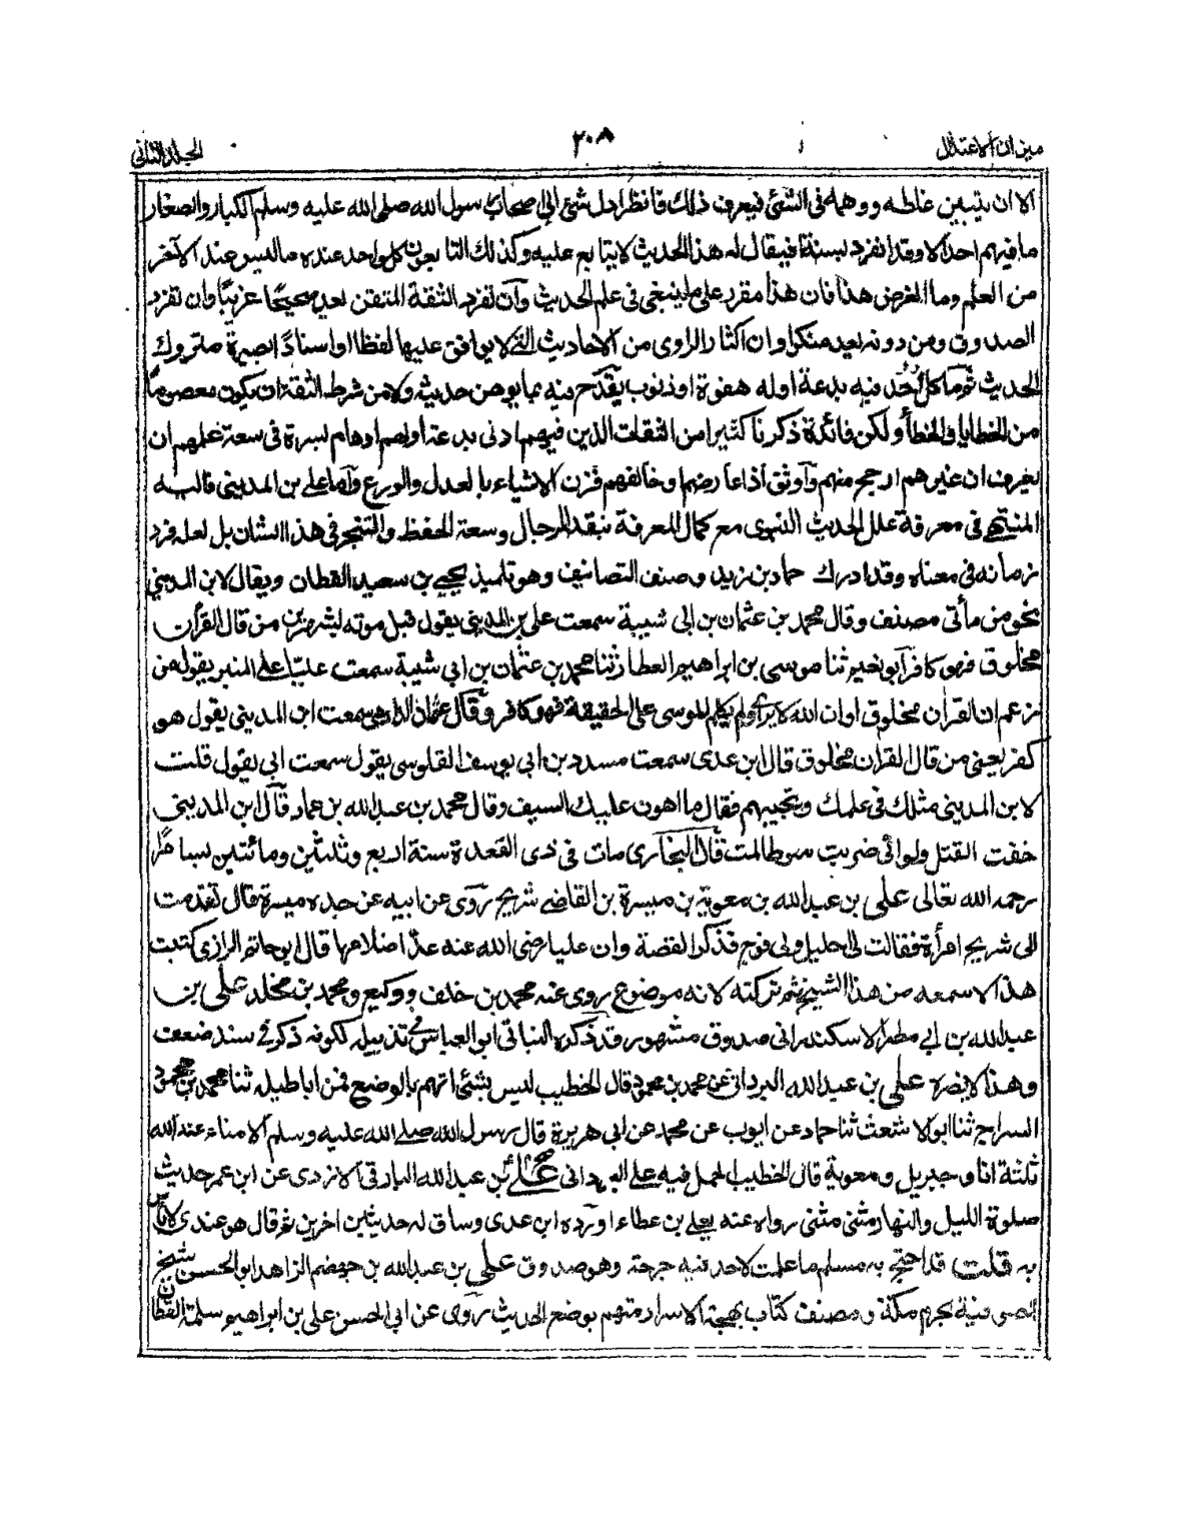 ميزان الاعتدال
٢٠٨
الجلد الثاني
الا ان يتبين غلطه ووهمه فى الشئ فيعرف ذلك فانظر اول شئ الى اصحاب رسول الله صلى الله عليه وسلم الكبار والصغار
ما فيهم احد الا وقد انفرد بسنة فيقال له هذا الحديث لا يتابع عليه وكذلك التابعون كل واحد عنده ما ليس عند الآخر
من العلم وما الغرض هذا فان هذا مقرر على ما ينبغى فى علم الحديث وان تفرد الثقة المتقن يعد صحيحًا غريبًا وان تفرد
الصدوق ومن دونه يعد منكرا وان اكثار الراوى من الاحاديث التى لا يوافق عليها لفظا او اسنادًا يصيرة متروك
الحديث ثم ما كل احد فيه بدعة اوله هفوة او ذنوب يقدح فيه بما يوهن حديثه ولا من شرط الثقة ان يكون معصومًا
من الخطايا والخطأ ولكن فائدة ذكرنا كثيرا من الثقات الذين فيهم ادنى بدعة اولهم اوهام يسيرة فى سعة علمهم ان
يعرف ان غيرهم ارجح منهم وآوثق اذا عارضهم وخالفهم فزن الاشياء بالعدل والورع وآما على بن المدينى فاليه
المنتهى فى معرفة علل الحديث النبوى مع كمال المعرفة بنقد الرجال وسعة الحفظ والتبحر فى هذا الشان بل لعله فرد
زمانه فى معناه وقد ادرك حماد بن زيد وصنف التصانيف وهو تلميذ يحيى بن سعيد القطان ويقال لابن المدينى
نحو من مأتى مصنف وقال محمد بن عثمان بن ابى شيبة سمعت على بن المدينى يقول قبل موته لبشهرين من قال القرأن
مخلوق فهو كافر آبو نعيم ثنا موسى بن ابراهيم العطار ثنا محمد بن عثمان بن ابى شيبة سمعت عليّا على المنبر يقول من
زعم ان القرأن مخلوق او ان الله لا يرى ولم يكلم موسى على الحقيقة فهو كافر وقال عثمان الدارمى سمعت ابن المدينى يقول هو
كفر يعنى من قال القرأن مخلوق قال ابن عدى سمعت مسدد بن ابى يوسف القلوسى يقول سمعت ابى يقول قلت
لابن المدينى مثلك فى علمك وتجيبهم فقال ما اهون عليك السيف وقال محمد بن عبد الله بن عمار قال ابن المدينى
خفت القتل ولو انى ضربت سوطا لمت قال البخارى مات فى ذى القعدة سنة اربع وثلثين ومائتين بسامرّا
رحمه الله تعالى على بن عبد الله بن معوية بن ميسرة بن القاضى شريح روى عن ابيه عن جده ميسرة قال تقدمت
الى شريح امرأة فقالت لى احليل ولى فرج فذكر القصة وان عليا رضى الله عنه عدّ اضلاعها قال ابن حاتم الرازى كتبت
هذا لاسمعه من هذا الشيخ ثم تركته لانه موضوع روى عنه محمد بن خلف ووكيع ومحمد بن مخلد على بن
عبد الله بن ابى مطر الاسكندرانى صدوق مشهور قد ذكره النباتى ابو العباس فى تذييله لكونه ذكر فى سند ضعف
وهذا لا يضره على بن عبد الله البردانى عن محمد بن محمود قال الخطيب ليس بشئ اتهم بالوضع فمن اباطيله ثنا محمد بن محمود
السراج ثنا ابو الاشعث ثنا حماد عن ايوب عن محمد عن ابى هريرة قال رسول الله صلى الله عليه وسلم الامناء عند الله
ثلثة انا وجبريل ومعوية قال الخطيب الحمل فيه على البردانى على بن عبد الله البارقى الازدى عن ابن عمر حديث
صلوة الليل والنهار مثنى مثنى رواه عنه يعلى بن عطاء اورده ابن عدى وساق له حديثين اخرين ثم قال هو عندى لا بأس
به قلت قد احتج به مسلم ما علمت لاحد فيه جرحة وهو صدوق على بن عبد الله بن جهضم الزاهد ابو الحسن شيخ
الصوفية بحرم مكة ومصنف كتاب بهجة الاسرار متهم بوضع الحديث روى عن ابى الحسن على بن ابراهيم سلمة القطان